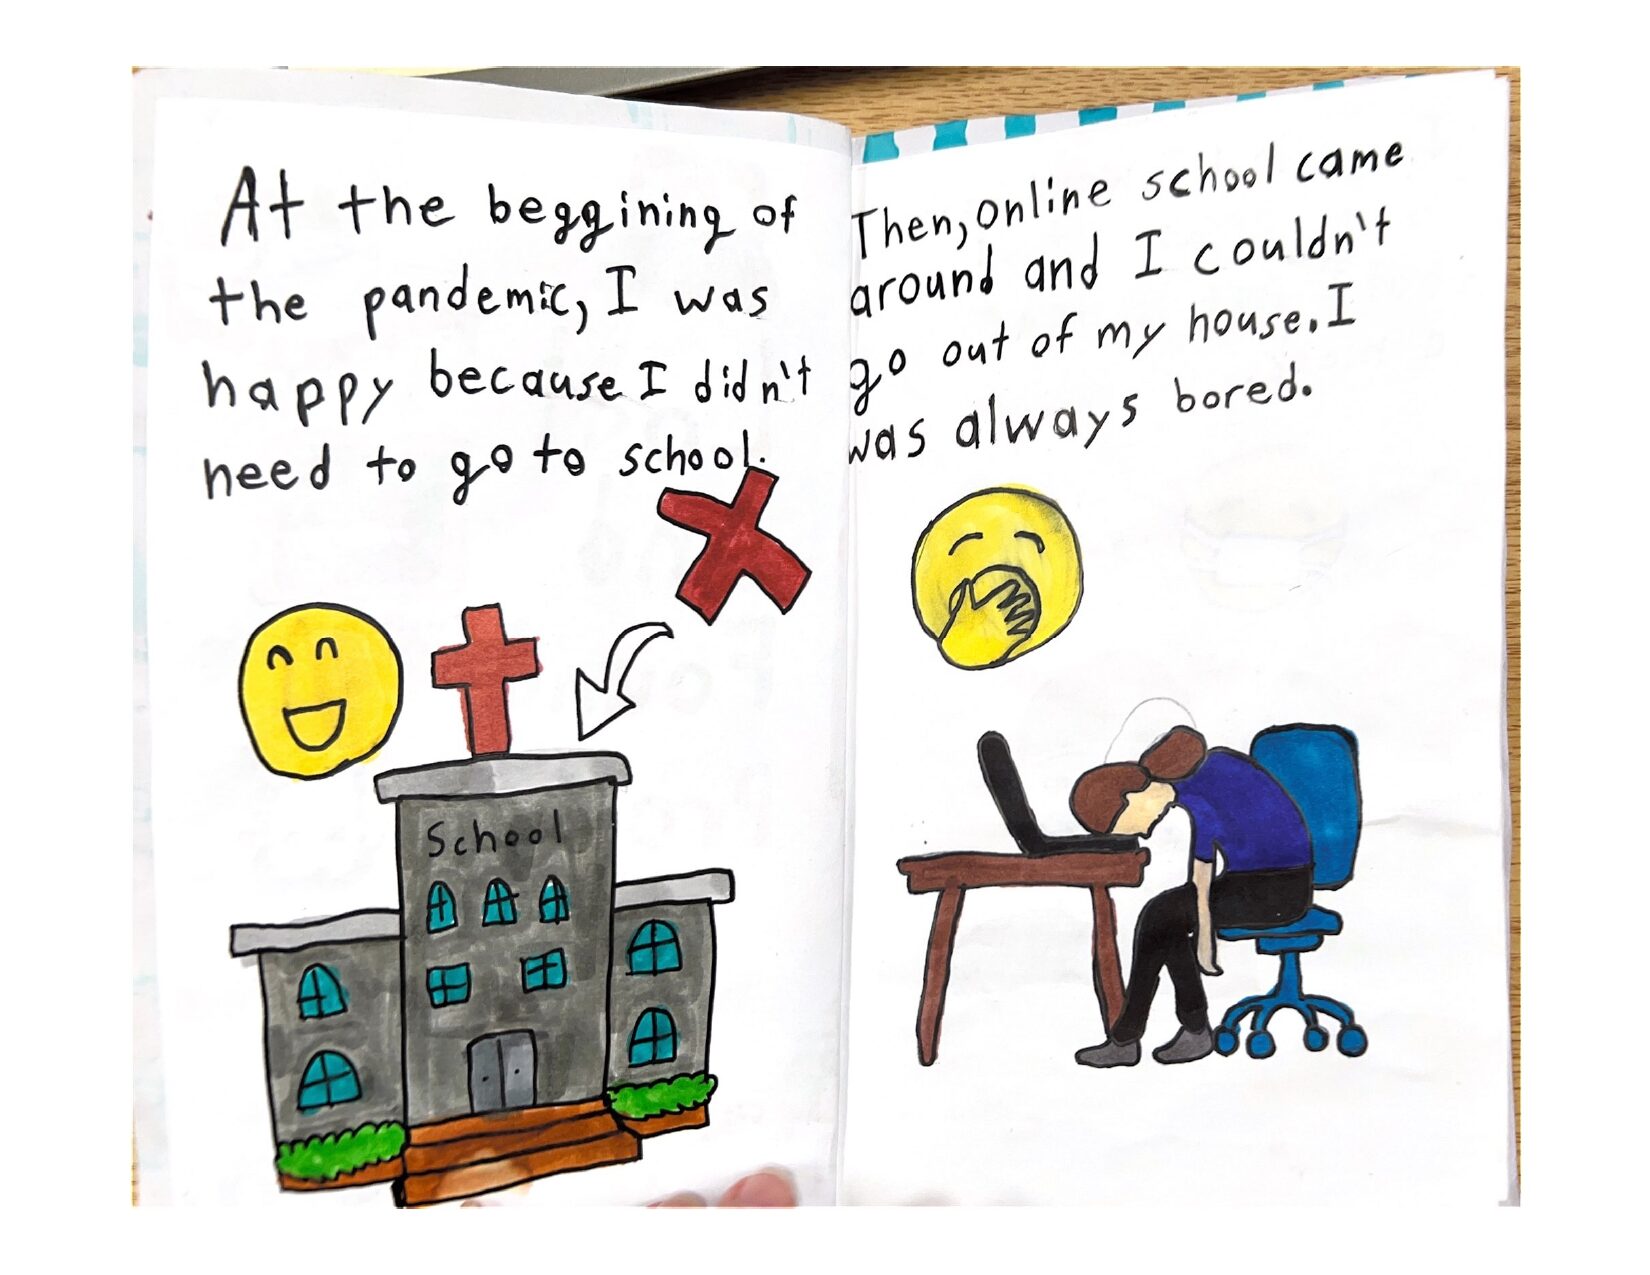 At the beggining of
the pandemic, I was
happy because I didn't
need to go to school.
School
Then, online school came
around and I couldn't
go out of my house. I
was always bored.